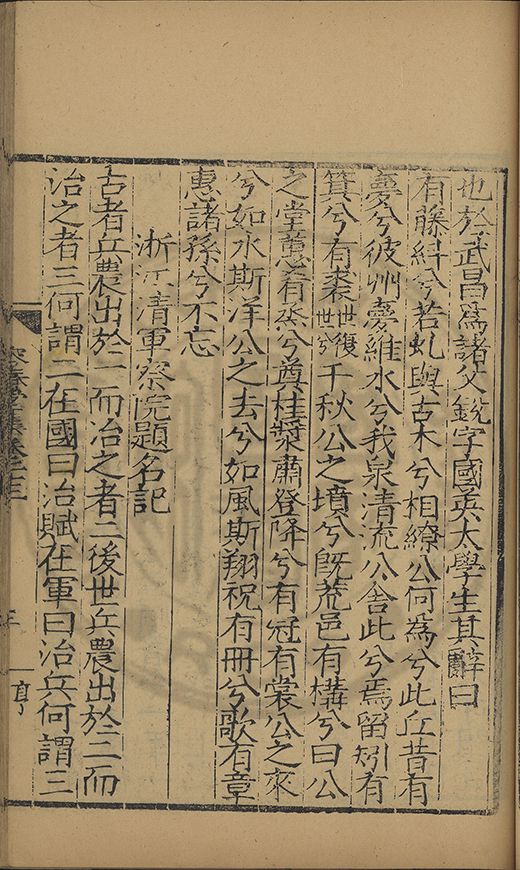 也於武昌為諸父銳字國英大學生其辭曰
有藤糾兮若虬與古木兮相繚公何為兮此丘昔有
夢兮彼州夢維水兮我泉清流公舍此兮焉留矧有
箕兮有裘世世兮復千秋公之墳兮既荒邑有構兮曰公
之堂薰有烝兮奠桂漿肅登降兮有冠有裳公之來
兮如水斯洋公之去兮如風斯翔祝有冊兮歌有章
惠諸孫兮不忘
浙江清軍察院題名記
古者兵農出於一而治之者二後世兵農出於二而
治之者三何謂二在國曰治賦在軍曰治兵何謂三